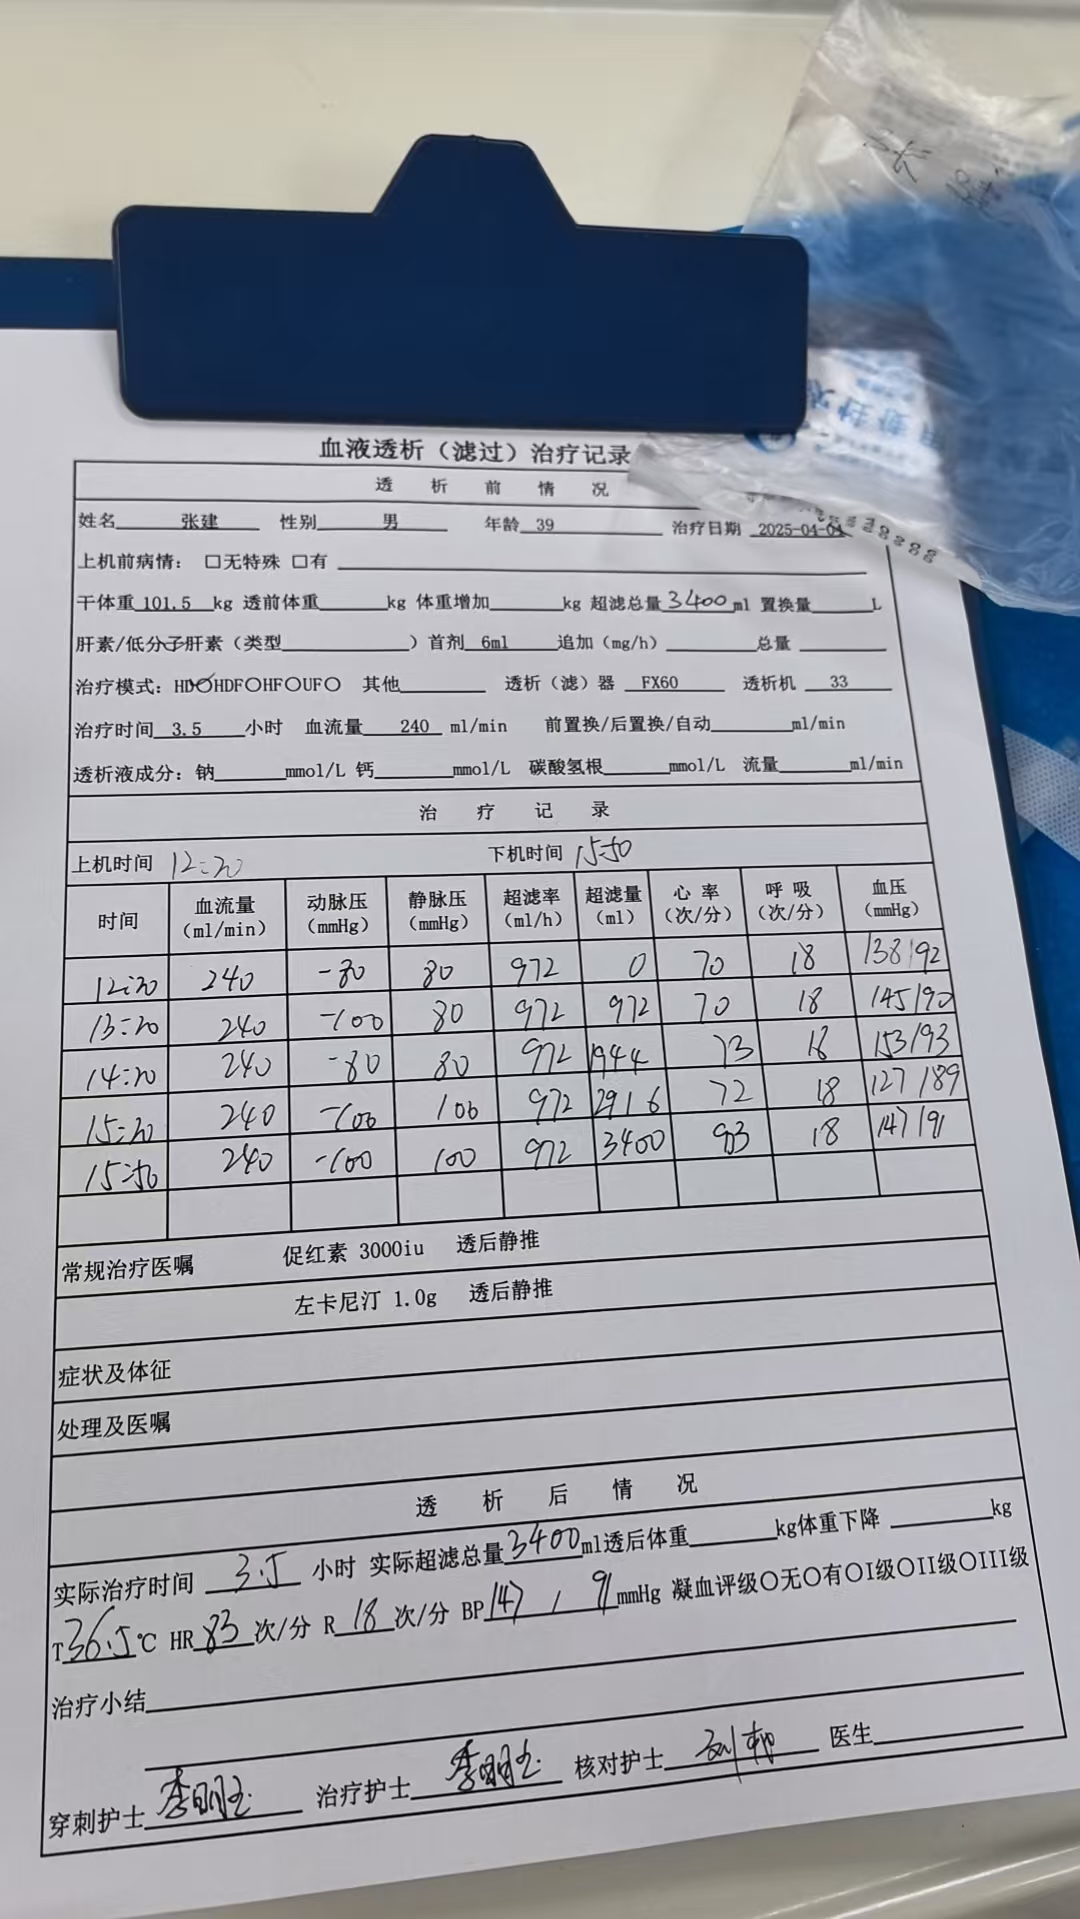 张建
血液透析（滤过）治疗记录
透析前情况
姓名 张建 性别 男 年龄 39 治疗日期 2025-04-04
上机前病情：□无特殊 □有
干体重 101.5 kg 透前体重 kg 体重增加 kg 超滤总量 3400 ml 置换量 L
肝素/低分子肝素（类型 ）首剂 6ml 追加（mg/h） 总量
治疗模式：HD○HDF○HF○UF○ 其他 透析（滤）器 FX60 透析机 33
治疗时间 3.5 小时 血流量 240 ml/min 前置换/后置换/自动 ml/min
透析液成分：钠 mmol/L 钙 mmol/L 碳酸氢根 mmol/L 流量 ml/min
治疗记录
上机时间 12:20 下机时间 15:50
时间 血流量(ml/min) 动脉压(mmHg) 静脉压(mmHg) 超滤率(ml/h) 超滤量(ml) 心率(次/分) 呼吸(次/分) 血压(mmHg)
12:20 240 -80 80 972 0 70 18 138/92
13:20 240 -100 80 972 972 70 18 145/90
14:20 240 -80 80 972 1944 73 18 153/93
15:20 240 -100 100 972 2916 72 18 127/89
15:50 240 -100 100 972 3400 83 18 147/91
常规治疗医嘱 促红素 3000iu 透后静推
左卡尼汀 1.0g 透后静推
症状及体征
处理及医嘱
透析后情况
实际治疗时间 3.5 小时 实际超滤总量 3400 ml透后体重 kg体重下降 kg
T 36.5 ℃ HR 83 次/分 R 18 次/分 BP 147 / 91 mmHg 凝血评级○无○有○I级○II级○III级
治疗小结
穿刺护士 李明玉 治疗护士 李明玉 核对护士 医生